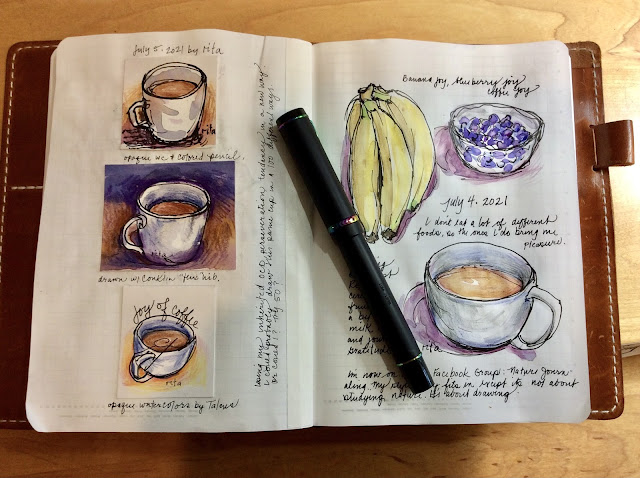 July 5, 2021 by rita
rita
opaque wc & colored pencil.
rita
drawn w/ Conklin "Juno" nib.
Joy of Coffee
rita
opaque watercolors by Talens
using my inherited OCD perseveration tendency in a new way.
I could probably draw this same cup in a 100 different ways.
Or could I? Try 50?
Banana joy, blueberry joy
coffee joy
July 4, 2021
I don't eat a lot of different
foods, so the ones I do bring me
pleasure.
a
milk
and
gratitude
rita
I'm now on Facebook Group: Nature Journ
along. My
studying nature. It's about drawing.